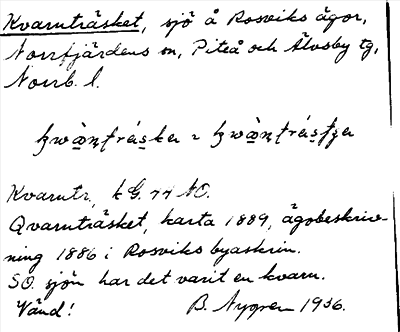 Kvarnträsket, sjö å Rosviks ägor,
Norrfjärdens sn, Piteå och Älvsby tg,
Norrb. l.
Kvarntr, kG. 77 NO.
Qvarnträsket, karta 1889, ägobeskriv-
ning 1886 i Rosviks byaskrin.
SO. sjön har det varit en kvarn.
Vänd! B. Nygren 1936.